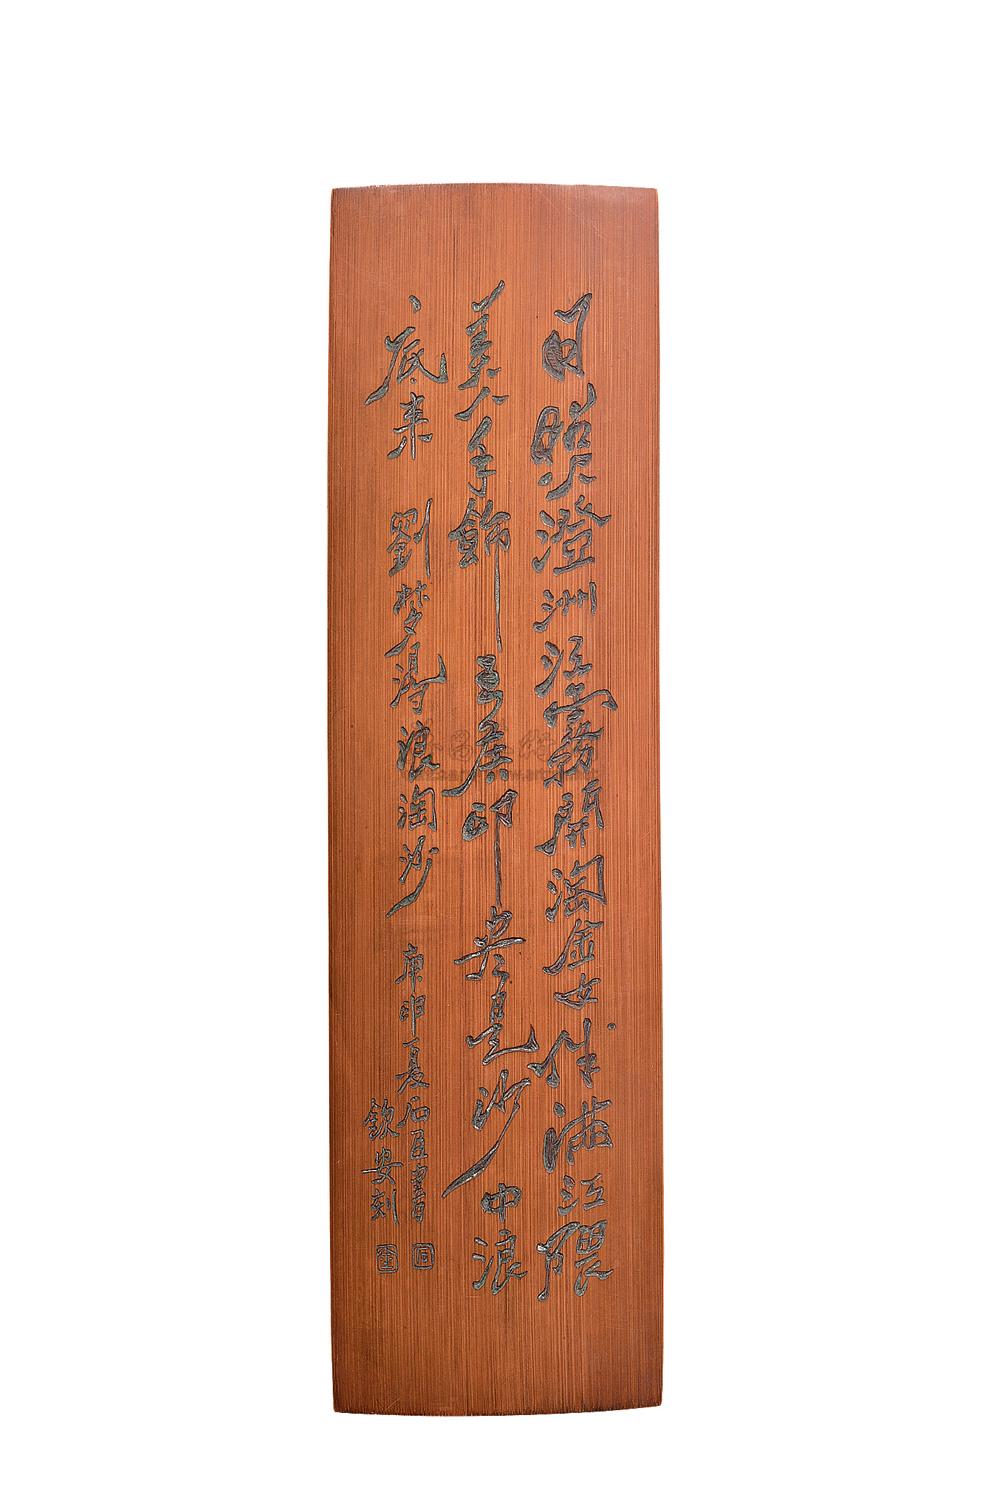 日照澄洲江霧開淘金女伴滿江隈
美人手飾王侯印盡是沙中浪
底来 劉夢得浪淘沙 庚申夏石書
欽安刻